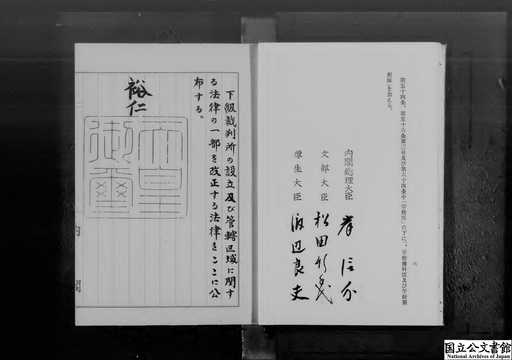 第五十四条、第五十六条第三号及び第六十四条中「学校医」の下に「、学校歯科医及び学校薬
剤師」を加える。
内閣総理大臣 岸信介
文部大臣 松田竹千代
厚生大臣 渡辺良夫
六
下級裁判所の設立及び管轄区域に関す
る法律の一部を改正する法律をここに公
布する。
裕仁
天皇
御璽
内閣
国立公文書館
National Archives of Japan